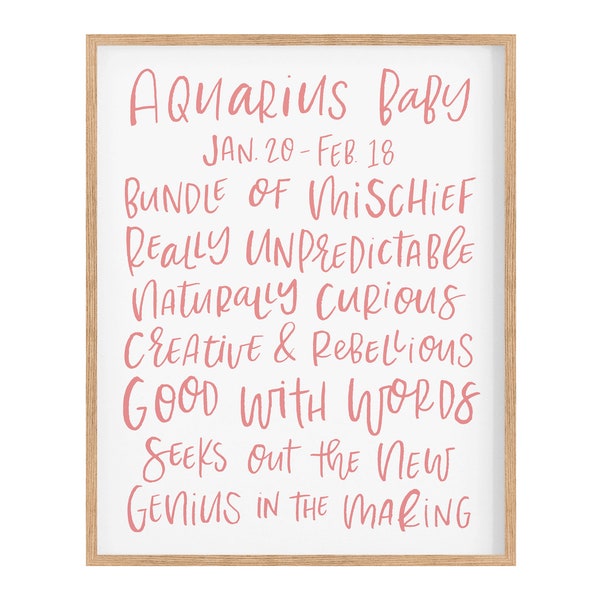 Aquarius Baby
Jan. 20 - Feb. 18
Bundle of Mischief
Really Unpredictable
Naturally Curious
Creative & Rebellious
Good with Words
Seeks out the New
Genius in the Making